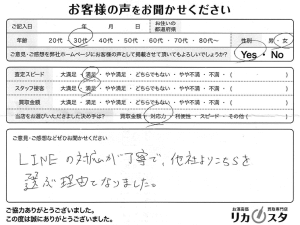 お客様の声をお聞かせください
ご記入日 年 月 日 お住いの都道府県
年齢 20代・30代・40代・50代・60代・70代・80代〜 性別 男・女
ご意見・ご感想を弊社ホームページにお客様の声として掲載させて頂いてもよろしいでしょうか? Yes・No
査定スピード 大満足・満足・やや満足・どちらでもない・やや不満・不満 ( )
スタッフ接客 大満足・満足・やや満足・どちらでもない・やや不満・不満 ( )
買取金額 大満足・満足・やや満足・どちらでもない・やや不満・不満 ( )
当店をお選びいただきました決め手は? 買取金額・対応力・利便性・スピード・その他( )
ご意見・ご感想などぜひお聞かせください
LINEの対応が丁寧で、他社よりこちらを
選ぶ理由となりました。
ご協力ありがとうございました。
この度は誠にありがとうございました。
お酒高価買取専門店
リカスタ